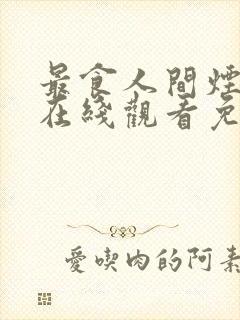 最食人間煙
在綫觀看免
愛喫肉的阿素